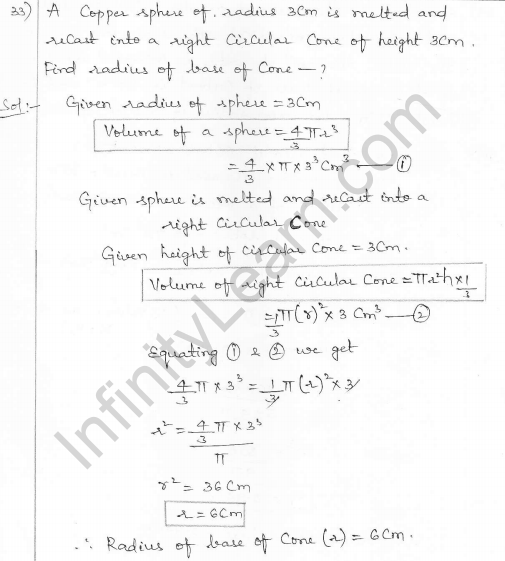 33) A Copper sphere of radius 3cm is melted and
recast into a right circular cone of height 3cm.
Find radius of base of cone — ?
Sol:- Given radius of sphere = 3cm
Volume of a sphere = 4/3 πr³
= 4/3 × π × 3³ cm³ —— ①
Given sphere is melted and recast into a
right circular cone
Given height of circular cone = 3cm.
Volume of right circular cone = πr²h × 1/3
= 1/3 π(r)² × 3 cm³ —— ②
Equating ① & ② we get
4/3 π × 3³ = 1/3 π(r)² × 3
r² = 4/3 π × 3³ / π
r² = 36cm
r = 6cm
∴ Radius of base of cone (r) = 6cm.
InfinityLearn.com